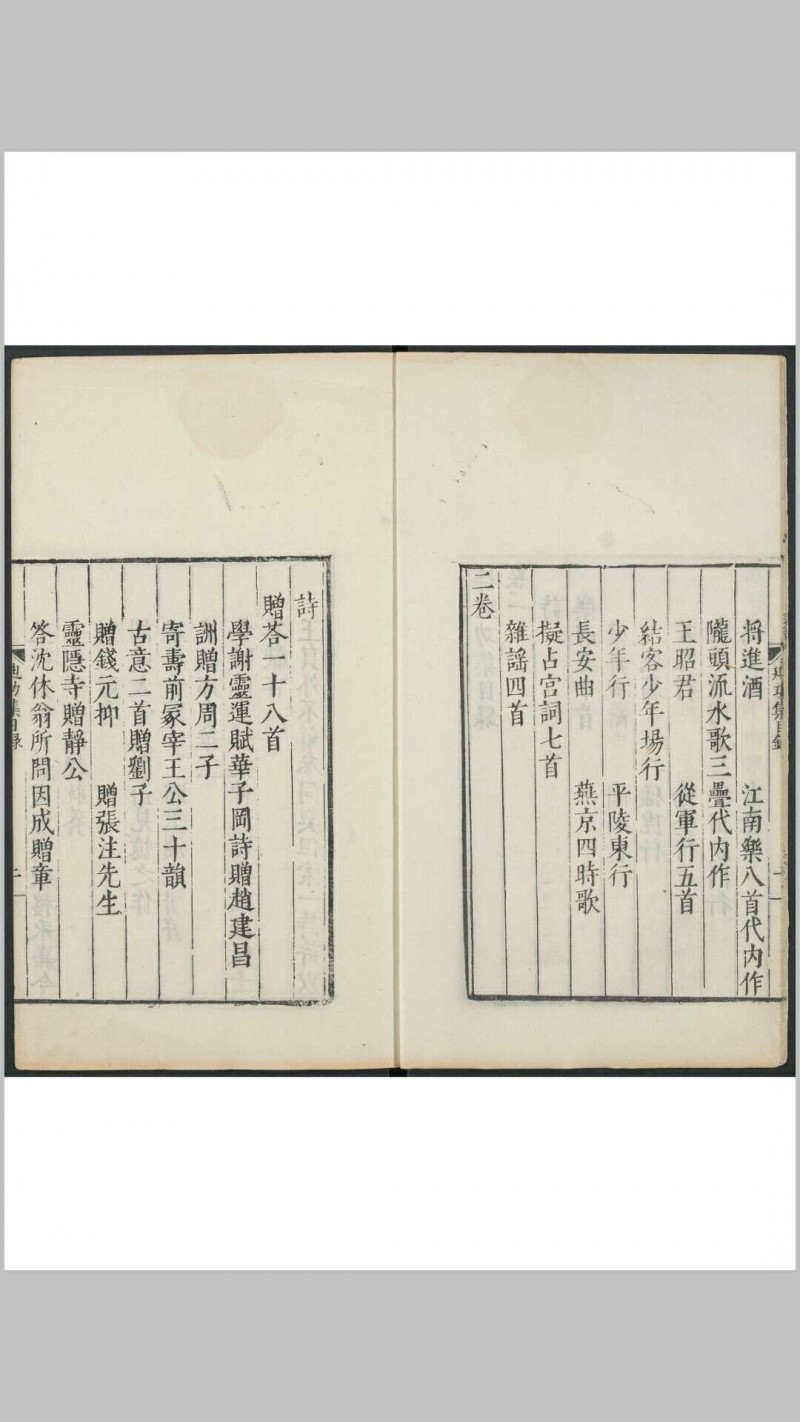 將進酒　江南樂八首代內作
隴頭流水歌三疊代內作
王昭君　從軍行五首
結客少年場行
少年行　平陵東行
長安曲　燕京四時歌
擬占宮詞七首
雜謠四首
二卷
詩
贈荅一十八首
學謝靈運賦華子岡詩贈趙建昌
詶贈方周二子
寄壽前冢宰王公三十韻
古意二首贈劉子
贈錢元抑　贈張注先生
靈隱寺贈靜公
答沈休翁所問因成贈章
迪功集目錄